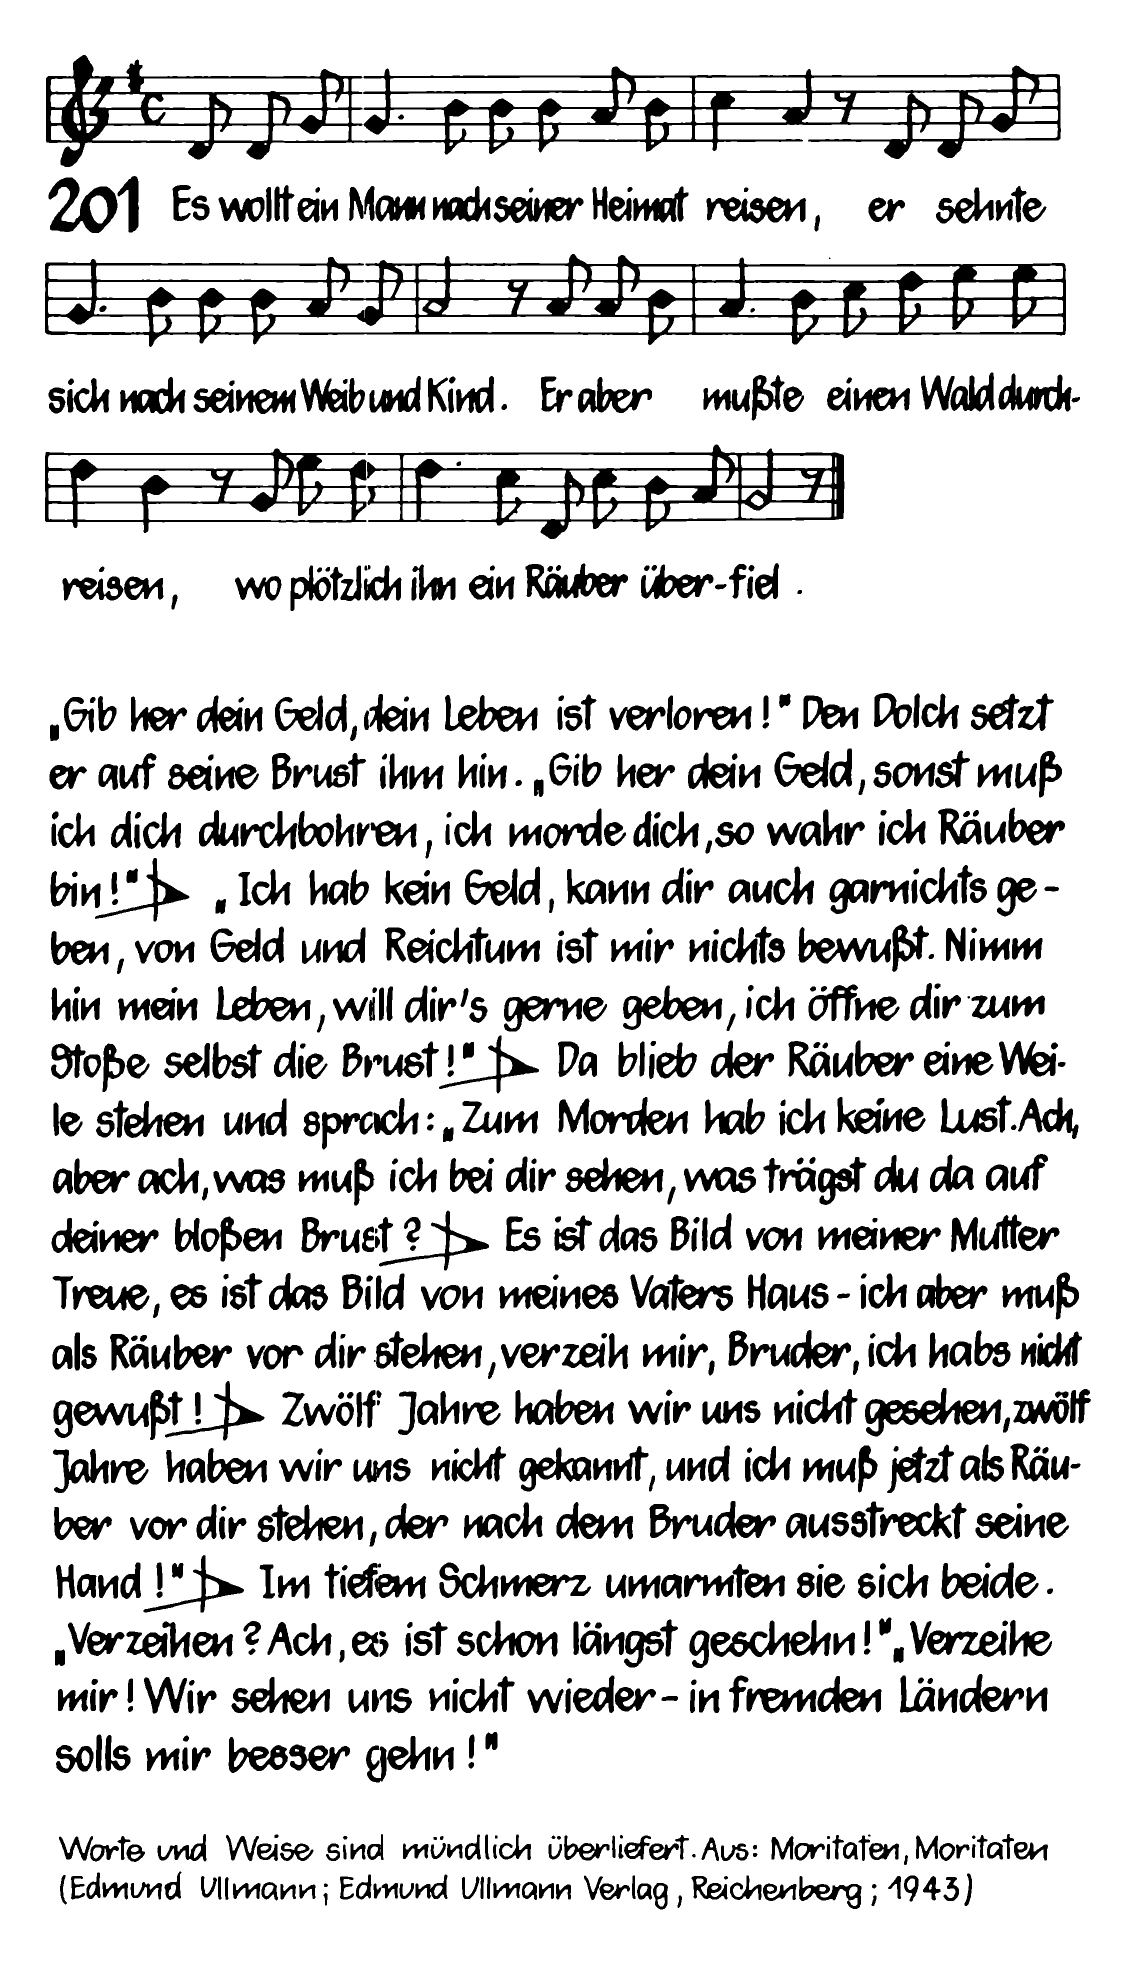 201 Es wollt ein Mann nach seiner Heimat reisen, er sehnte
sich nach seinem Weib und Kind. Er aber mußte einen Wald durch-
reisen, wo plötzlich ihn ein Räuber über-fiel.
„Gib her dein Geld, dein Leben ist verloren!" Den Dolch setzt
er auf seine Brust ihm hin. „Gib her dein Geld, sonst muß
ich dich durchbohren, ich morde dich, so wahr ich Räuber
bin!" „Ich hab kein Geld, kann dir auch garnichts ge-
ben, von Geld und Reichtum ist mir nichts bewußt. Nimm
hin mein Leben, will dir's gerne geben, ich öffne dir zum
Stoße selbst die Brust!" Da blieb der Räuber eine Wei-
le stehen und sprach: „Zum Morden hab ich keine Lust. Ach,
aber ach, was muß ich bei dir sehen, was trägst du da auf
deiner bloßen Brust? Es ist das Bild von meiner Mutter
Treue, es ist das Bild von meines Vaters Haus - ich aber muß
als Räuber vor dir stehen, verzeih mir, Bruder, ich habs nicht
gewußt! Zwölf Jahre haben wir uns nicht gesehen, zwölf
Jahre haben wir uns nicht gekannt, und ich muß jetzt als Räu-
ber vor dir stehen, der nach dem Bruder ausstreckt seine
Hand!" Im tiefem Schmerz umarmten sie sich beide.
„Verzeihen? Ach, es ist schon längst geschehn!" „Verzeihe
mir! Wir sehen uns nicht wieder - in fremden Ländern
solls mir besser gehn!"
Worte und Weise sind mündlich überliefert. Aus: Moritaten, Moritaten
(Edmund Ullmann; Edmund Ullmann Verlag, Reichenberg; 1943)